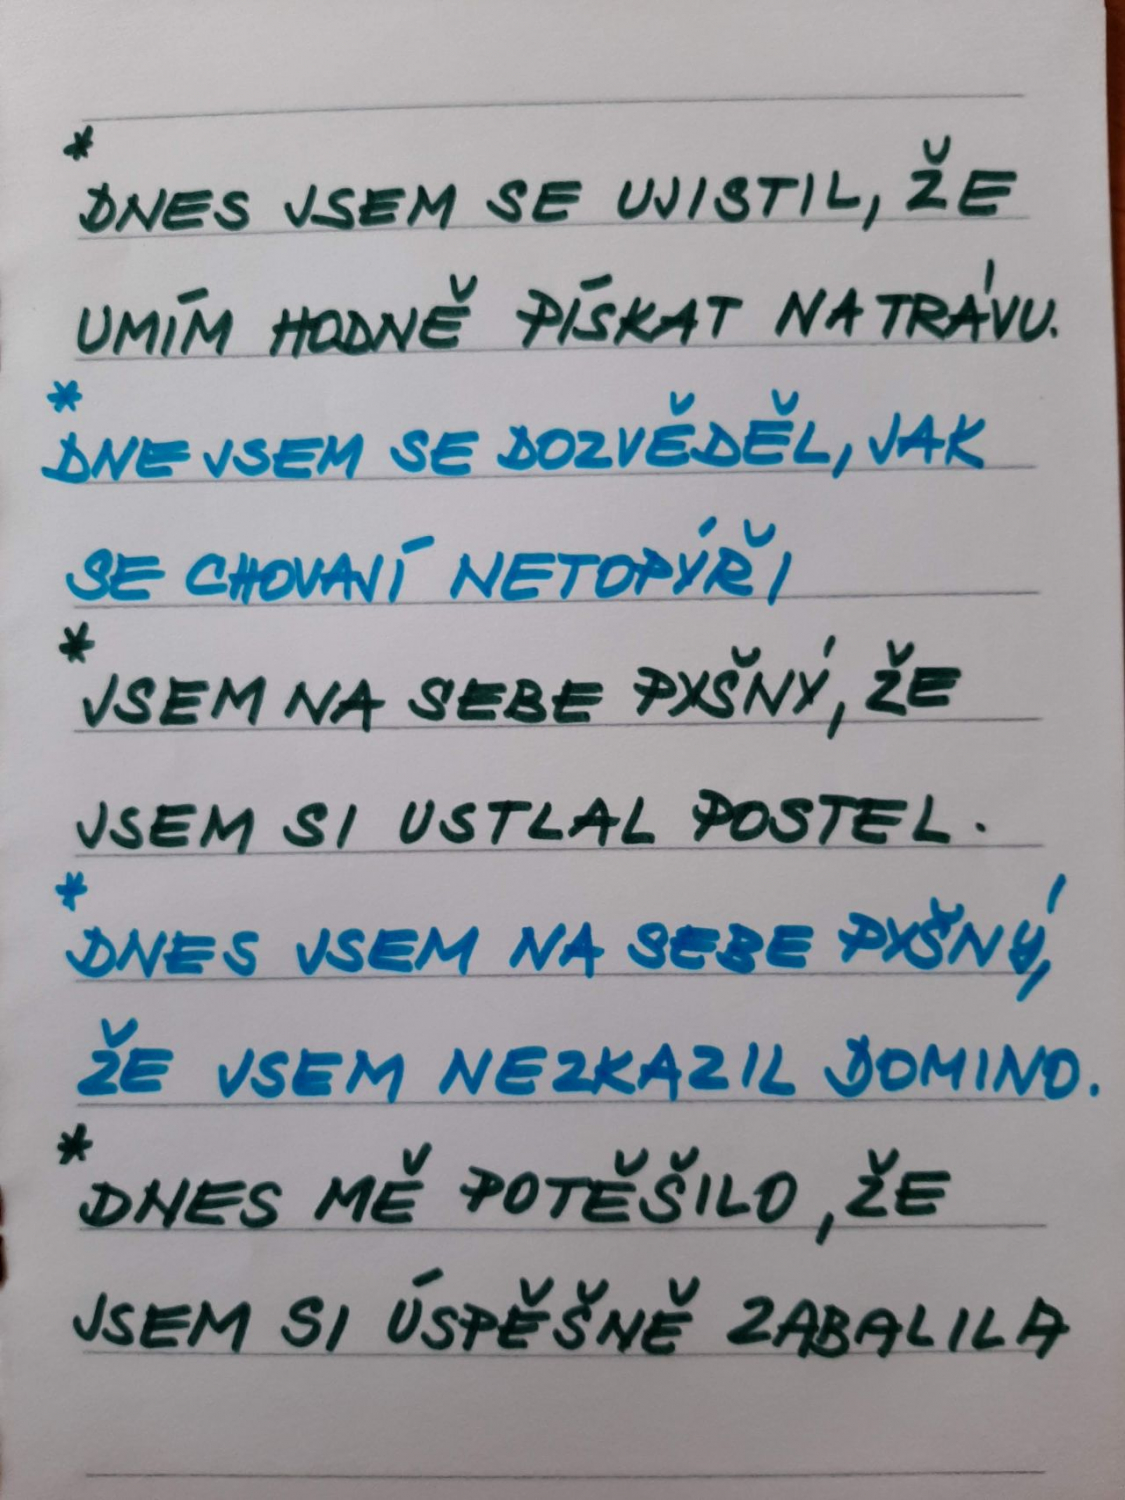 *
DNES JSEM SE UJISTIL, ŽE
UMÍM HODNĚ PÍSKAT NA TRÁVU.
*
DNE JSEM SE DOZVĚDĚL, JAK
SE CHOVAJÍ NETOPÝŘI
*
JSEM NA SEBE PYŠNÝ, ŽE
JSEM SI USTLAL POSTEL.
*
DNES JSEM NA SEBE PYŠNÝ,
ŽE JSEM NEZKAZIL DOMINO.
*
DNES MĚ POTĚŠILO, ŽE
JSEM SI ÚSPĚŠNĚ ZABALILA